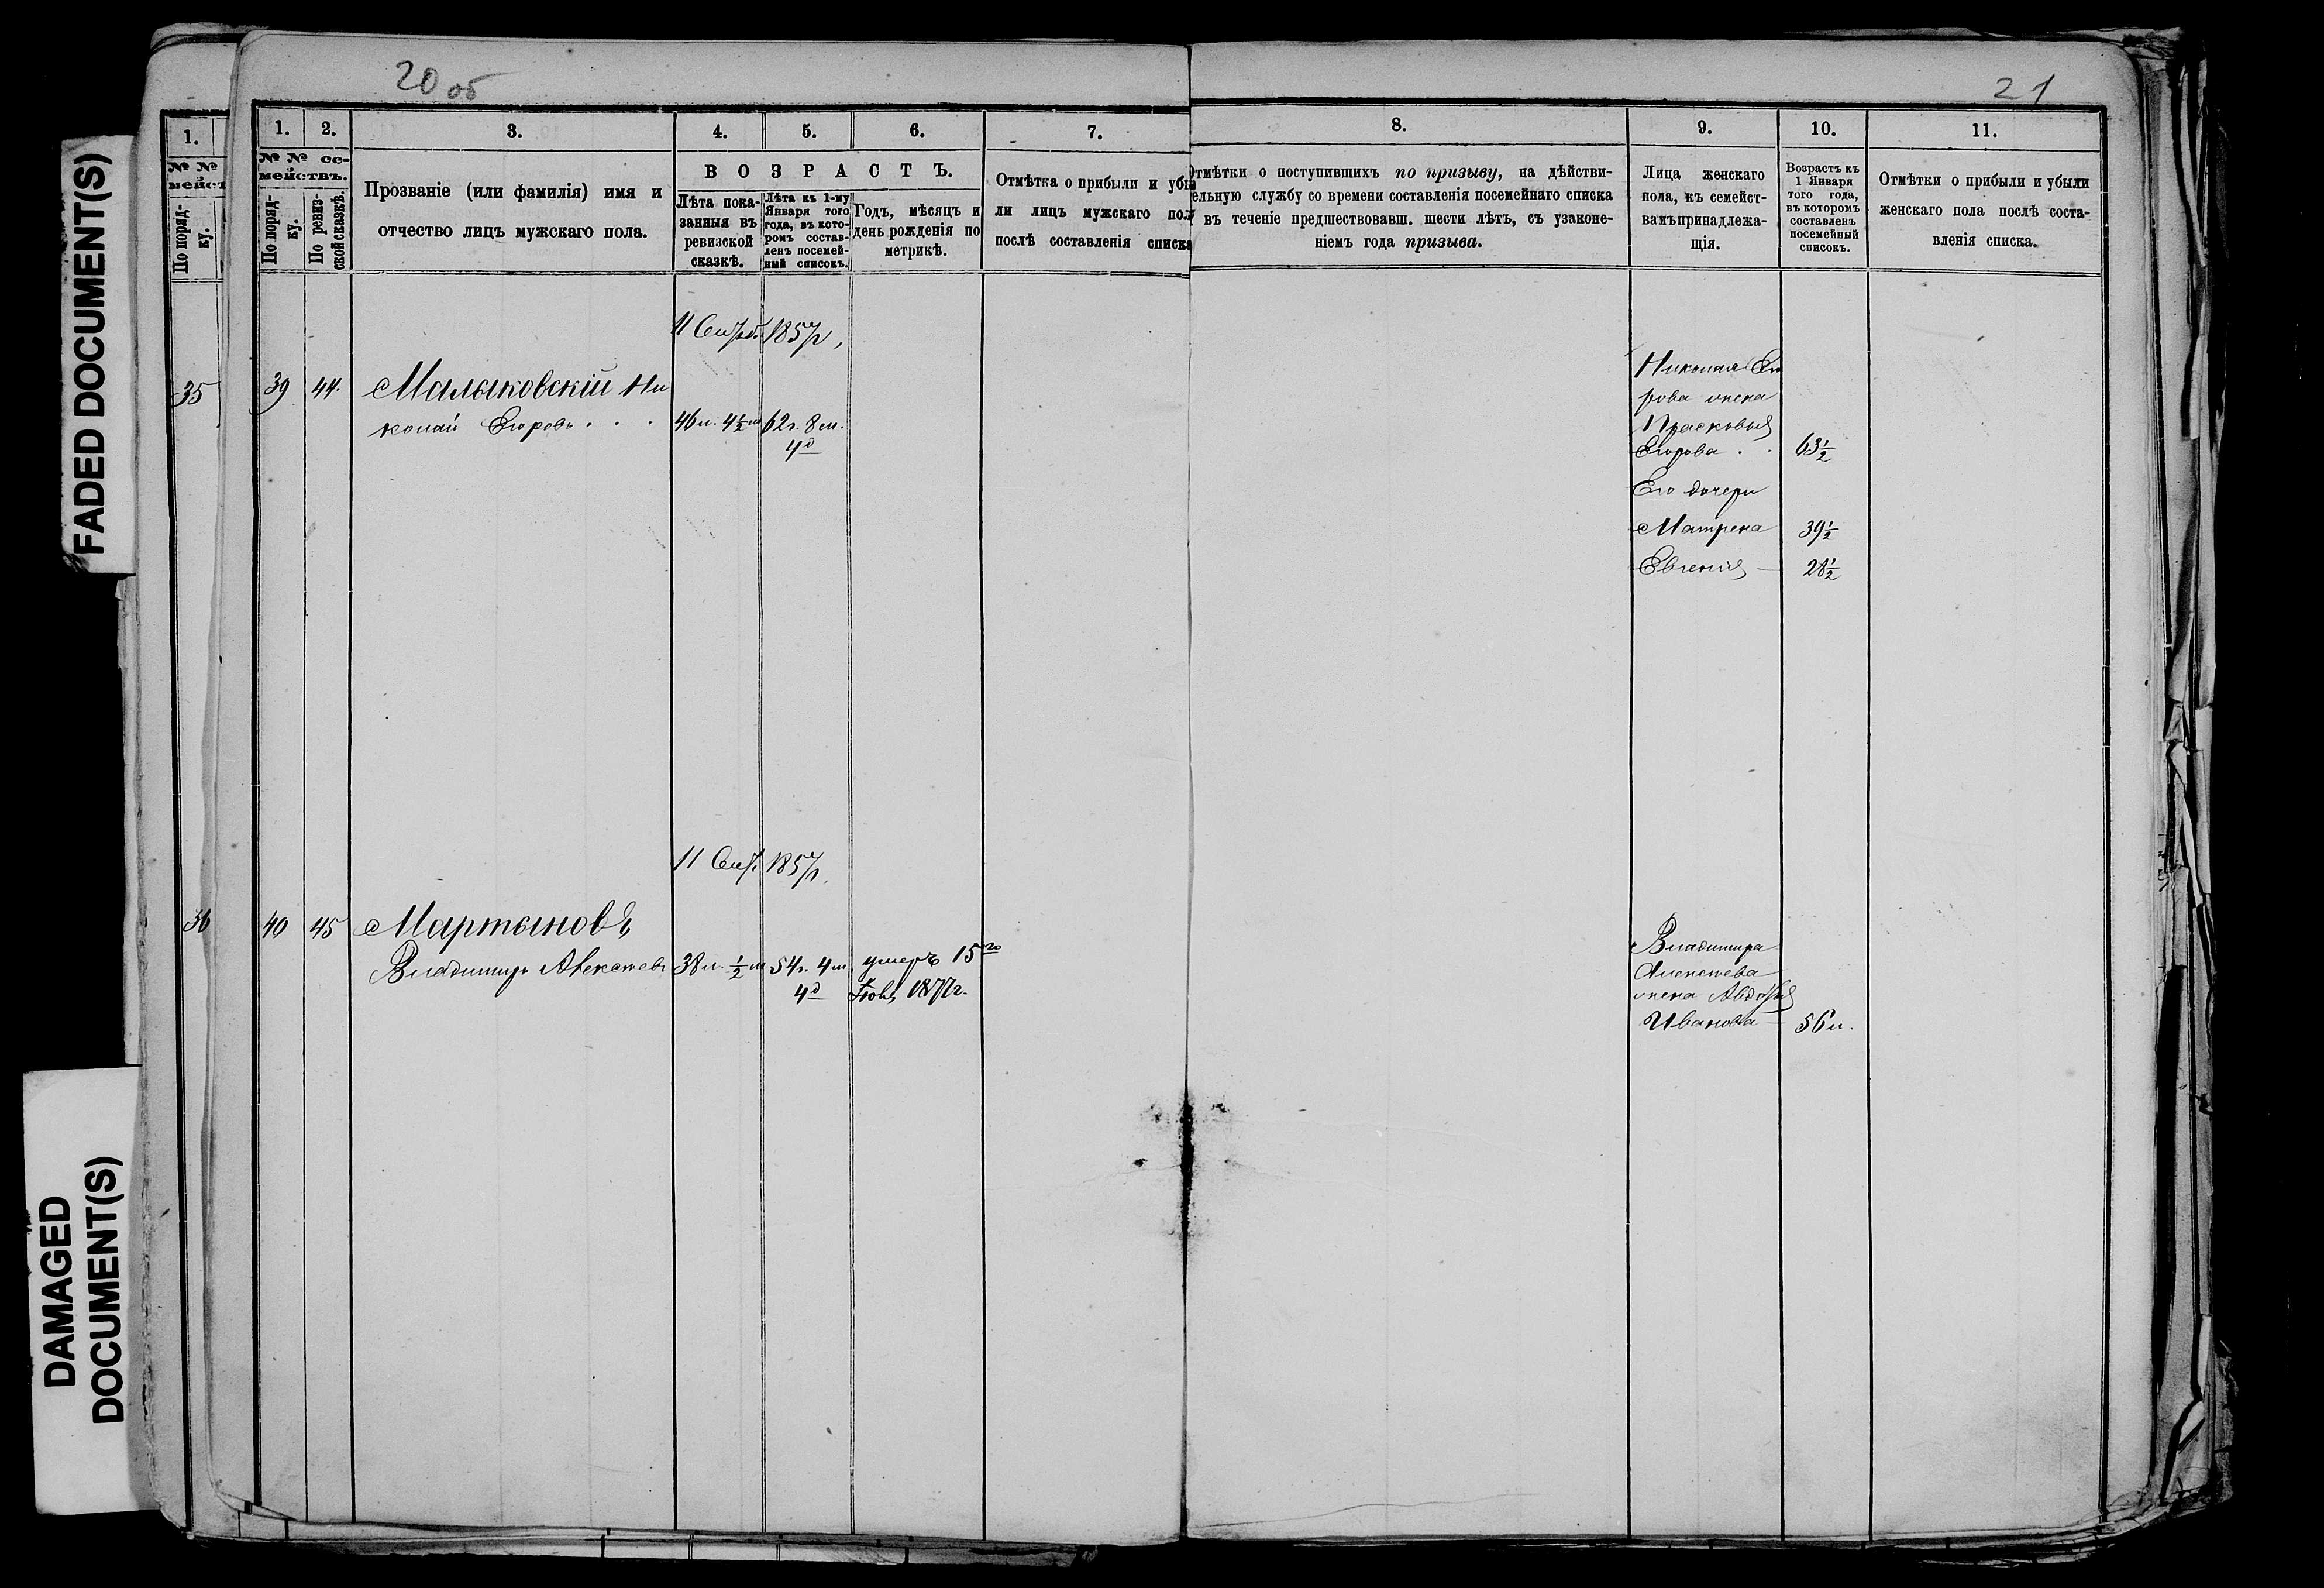 FADED DOCUMENT(S)
DAMAGED
DOCUMENT(S)
20 об
21
1.
№ №
мейст
По поряд-
ку.
35
36
1. 2. 3. 4. 5. 6. 7.
№ № се-
мействъ.
По поряд-
ку.
По ревиз-
ской сказкѣ.
Прозваніе (или фамилія) имя и
отчество лицъ мужскаго пола.
ВОЗРАСТЪ.
Лѣта пока-
занныя въ
ревизской
сказкѣ.
Лѣта къ 1-му
Января того
года, въ кото-
ромъ состав-
ленъ посемей-
ный списокъ.
Годъ, мѣсяцъ и
день рожденія по
метрикѣ.
Отмѣтка о прибыли и убы
ли лицъ мужскаго пол
послѣ составленія списка
8. 9. 10. 11.
Отмѣтки о поступившихъ по призыву, на дѣйстви-
ельную службу со времени составленія посемейнаго списка
въ теченіе предшествовавш. шести лѣтъ, съ узаконе-
ніемъ года призыва.
Лица женскаго
пола, къ семейст-
вамъ принадлежа-
щія.
Возрастъ къ
1 Января
того года,
въ которомъ
составленъ
посемейный
списокъ.
Отмѣтки о прибыли и убыли
женскаго пола послѣ соста-
вленія списка.
11 Сентб. 1857г,
39 44. Малыковскій Ни
колай Егоровъ . . . 46л. 4½м 62г. 8м.
4д
Николая Его
рова жена
Прасковья
Егорова . . 63½
Его дочери
Матрена 39½
Евгенія — 28½
11 Сент. 1857г.
40 45 Мартыновъ
Владимиръ Алексѣевъ 38л. ½м 54г. 4м умеръ 15го
4д 1877г.
Владимира
Алексѣева
жена Авдотья
Иванова — 56л.